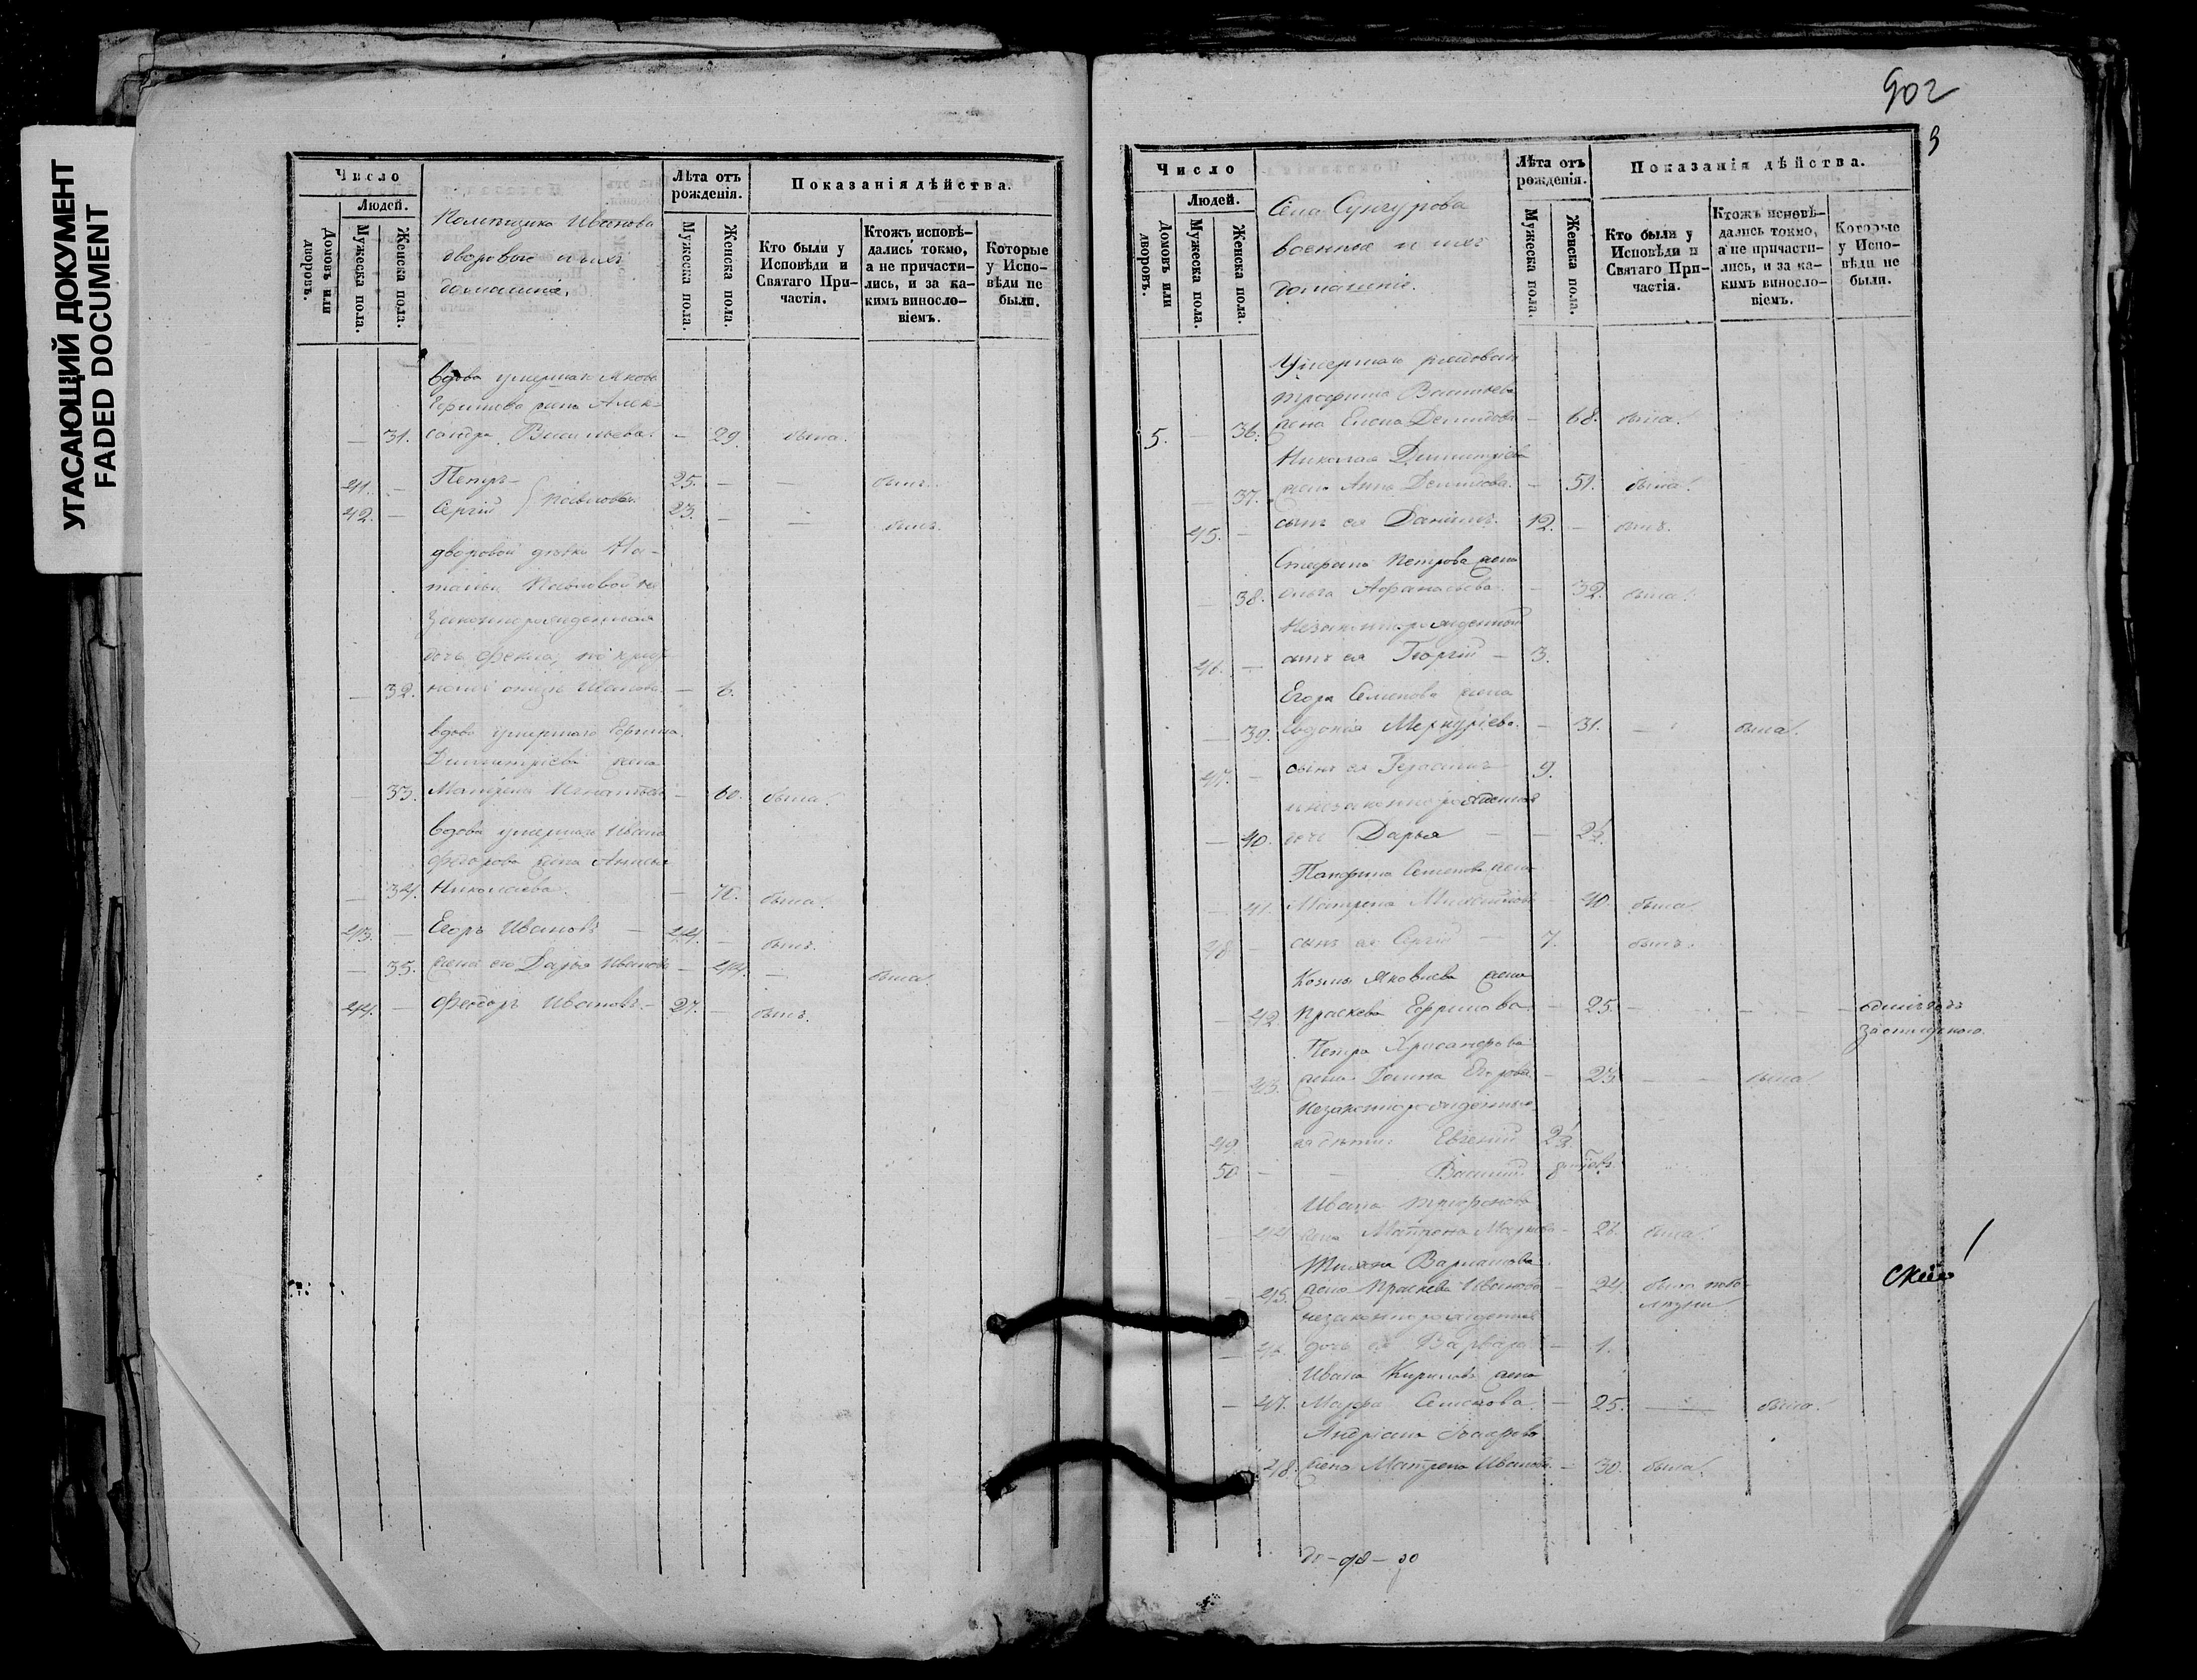 УГАСАЮЩИЙ ДОКУМЕНТ
FADED DOCUMENT
Число
Людей.
Домовъ или дворовъ.
Мужеска пола.
Женска пола.
Помѣщика Иванова
дворовые и ихъ
домашніе.
Лѣта отъ рожденія.
Мужеска пола.
Женска пола.
Показанія дѣйства.
Кто были у Исповѣди и Святаго Причастія.
Ктожъ исповѣдались токмо, а не причастились, и за какимъ винословіемъ.
Которые у Исповѣди не были.
вдова умершаго Якова
Ефимова жена Алек-
— 31. сандра Васильева. — 29. была.
41. — Петръ 25. — — былъ.
42. — Сергій } Павловы 23. — — былъ.
дворовой дѣвки На-
тальи Павловой не
законнорожденная
дочь Фекла, по крест-
— 32. ному отцу Иванова. — 6.
вдова умершаго Ефима
Димитріева жена
— 33. Матрена Игнатьева — 60. была.
вдова умершаго Ивана
Федорова жена
— 34. Николаева. — была.
43. — Егоръ Ивановъ — 44. — былъ.
— 35. жена его Дарья Иванова — 44. — была.
44. — Феодоръ Ивановъ — 27. — былъ.
902
3
Число
Людей.
Домовъ или дворовъ.
Мужеска пола.
Женска пола.
Села Сунгурова
военные и ихъ
домашніе.
Лѣта отъ рожденія.
Мужеска пола.
Женска пола.
Показанія дѣйства.
Кто были у Исповѣди и Святаго Причастія.
Ктожъ исповѣдались токмо, а не причастились, и за какимъ винословіемъ.
Которые у Исповѣди не были.
Умершаго рядоваго
Трофима Васильева
5. — 36. жена Елена Демидова — 68. была.
Николая Димитріева
— 37. жена Анна — 51. была.
45. — сынъ ея Даніилъ. 12. — былъ.
Стефана Петрова жена
— 38. Ольга Афанасьева — 32. была.
Незаконнорожденный
46. — сынъ ея Георгій — 3.
Егора Семенова жена
— 39. Евдокія Меркуріева. — 31. — была.
47. — сынъ ея Герасимъ 9.
и незаконнорожденная
— 40. дочь Дарья — — 2½
Панфила Семенова жена
— 41. Матрена — 40. была.
48 — сынъ ея Сергій — 7. былъ.
Козмы Яковлева жена
— 42 Праскева Ефримова. — 25. — — —
Петра Хрисанфова
— 43. жена Домна Егорова — 23 — — была.
Незаконнорожденные
49. ея дѣти: Евгеній 2½
50 — — Василій
Ивана Тимофеева
— 44 жена Матрона Маркова — 26. была.
Варлаамова
— 45. жена Праскева Иванова — 24. была
незаконнорожденная
— 46. дочь ея Варвара — 1.
Ивана Кирилова жена
— 47. Марфа Семенова. — 25. — была.
Андріана
48. жена Матрена Иванова — 30. была.